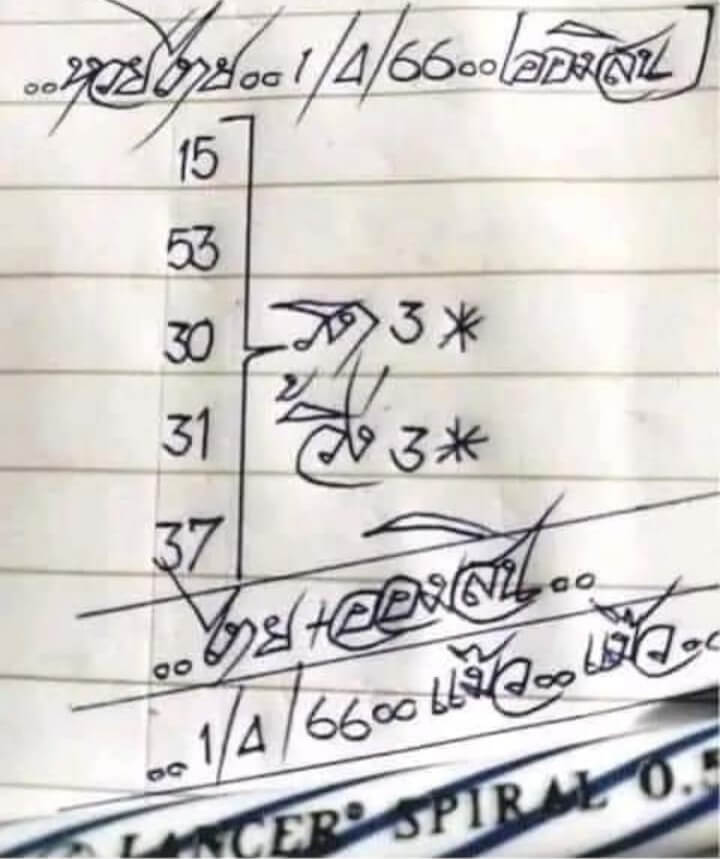 ..หวยไทย..1/4/66..ออมสิน
15
53
30
31
37
วิ่ง 3*
3*
..ไทย+ออมสิน..
..1/4/66..แม้ว..แม้ว..
LANCER® SPIRAL 0.5